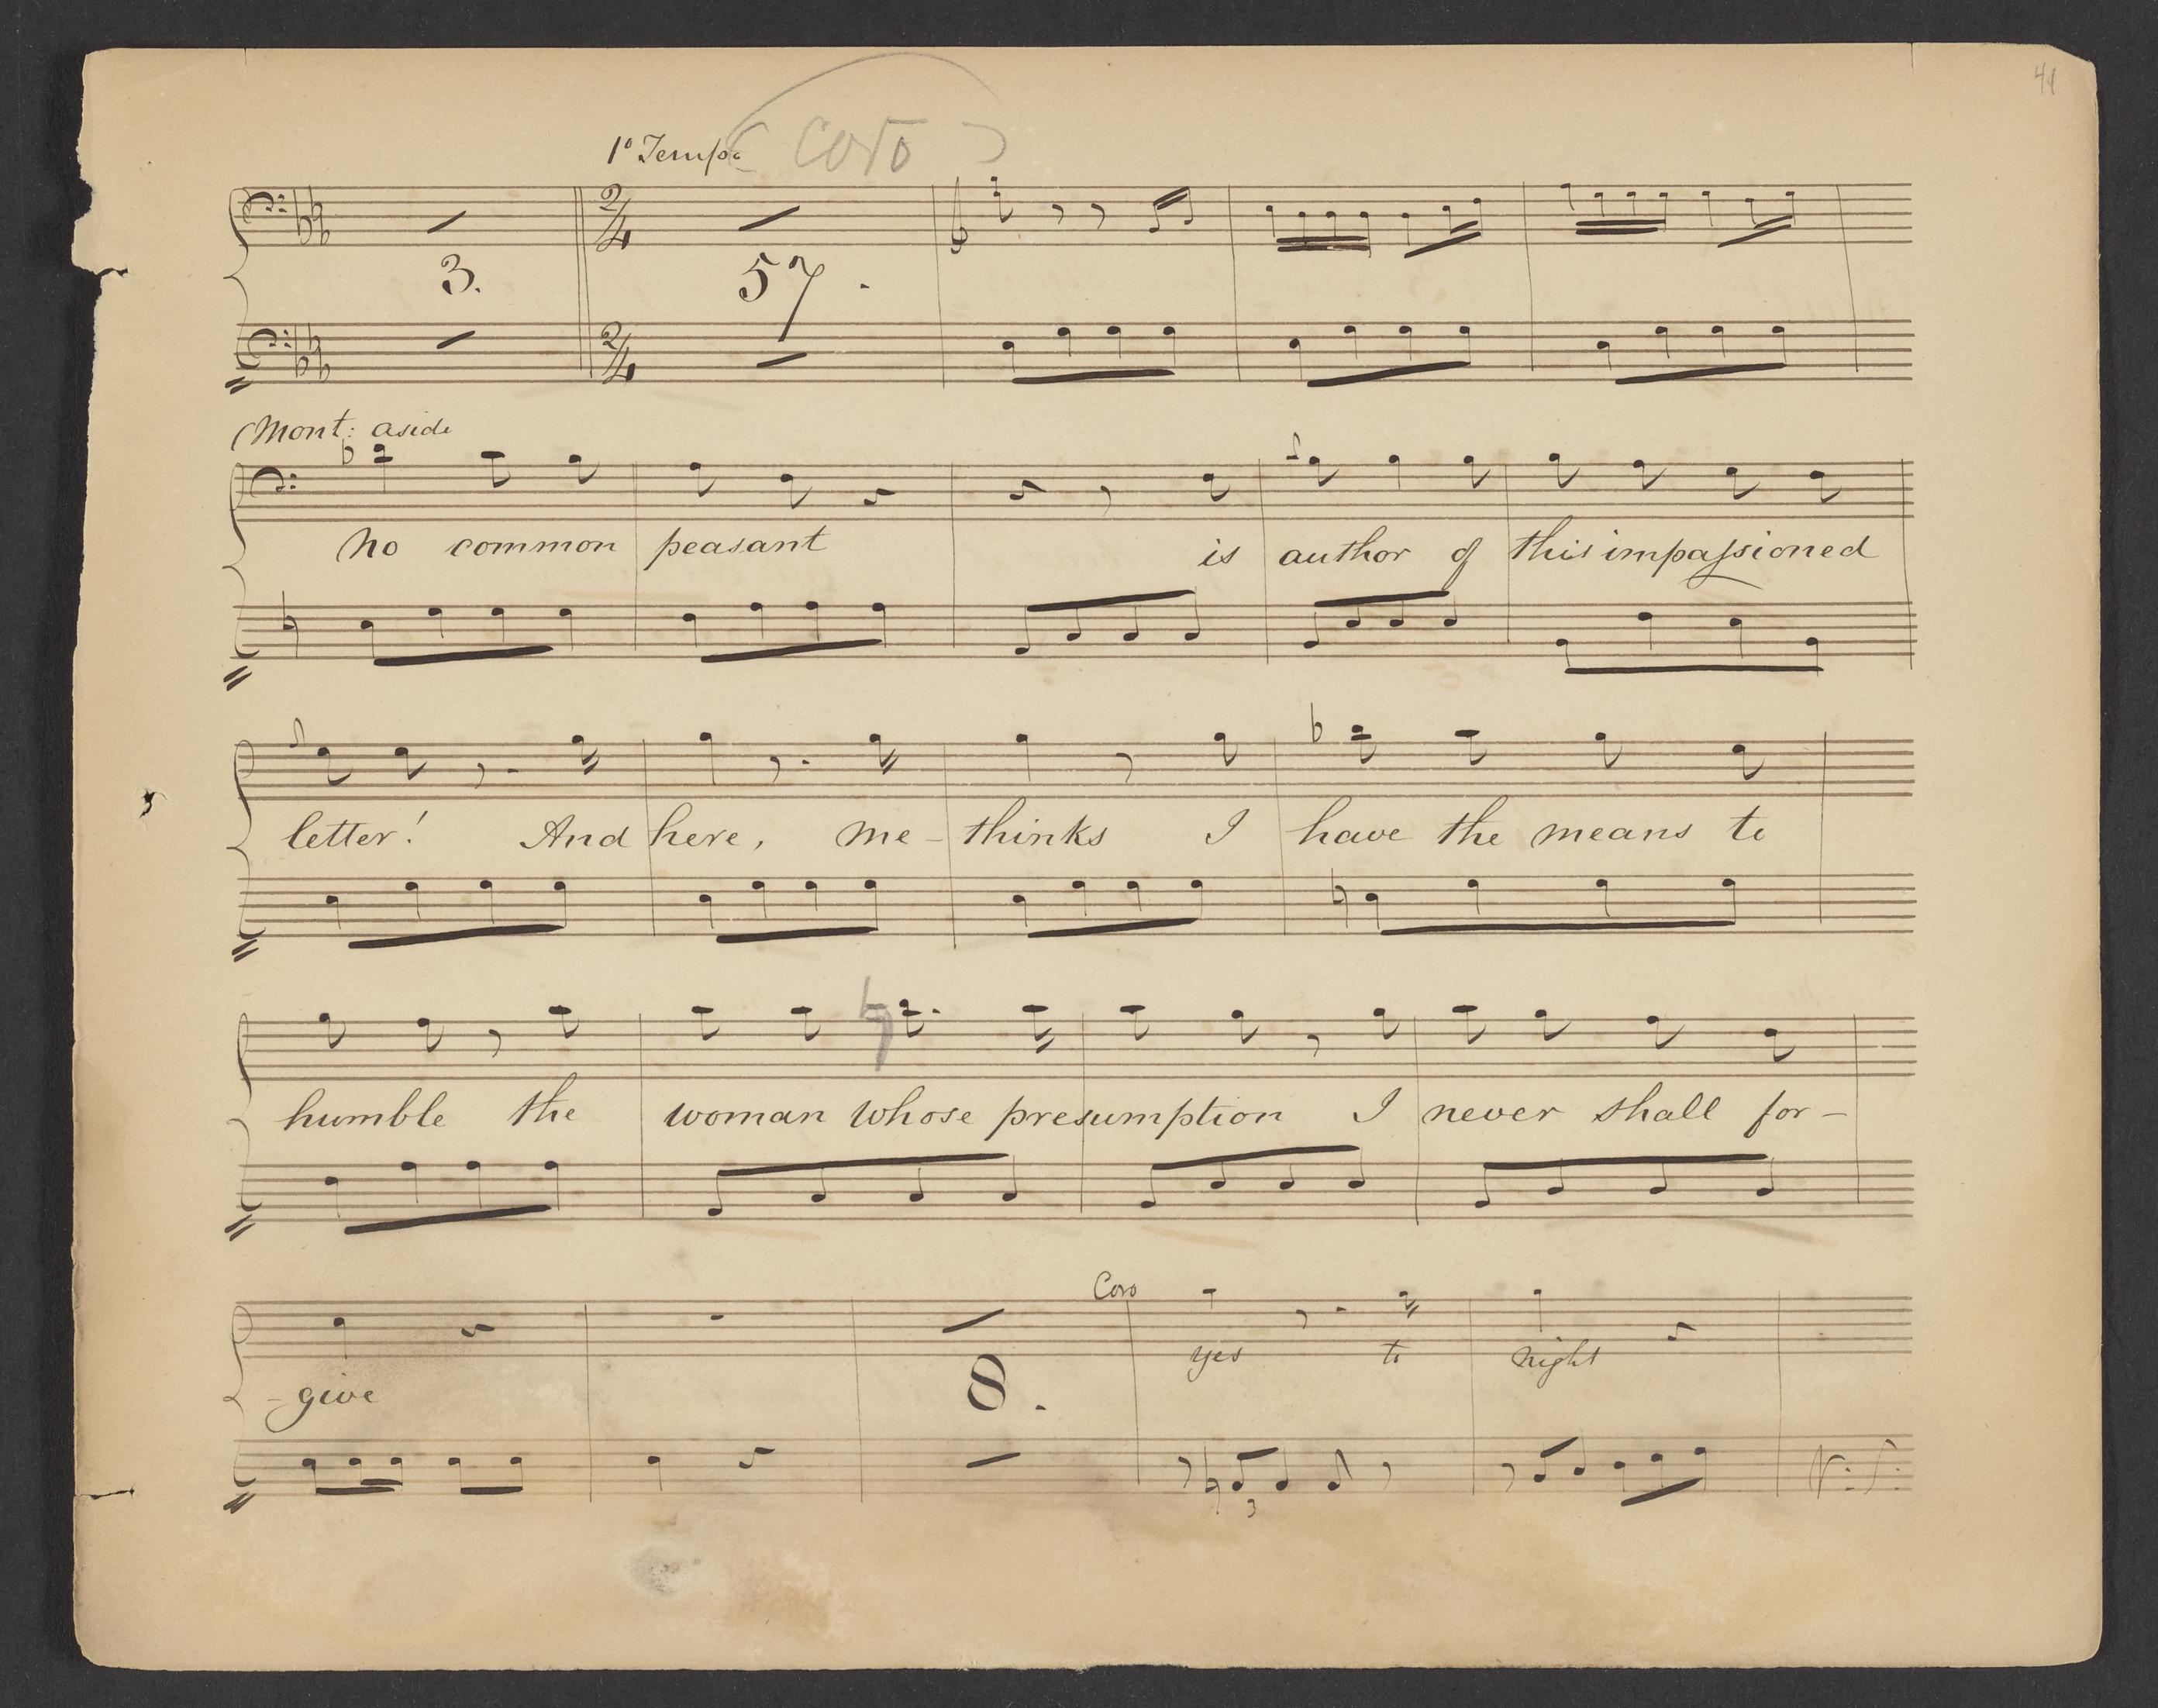 41
1º Tempo (Coro)
2/4
3. 57.
2/4
(Mont: aside
No common peasant is author of this impassioned
letter! And here, me- thinks I have the means to
humble the woman whose presumption I never shall for-
Coro
yes to night
-give 8.
3